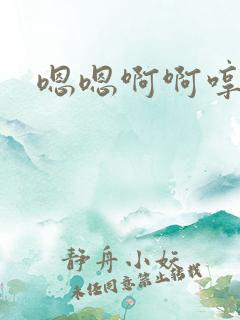 嗯嗯啊啊哼
静舟小妖
未经同意禁止转载